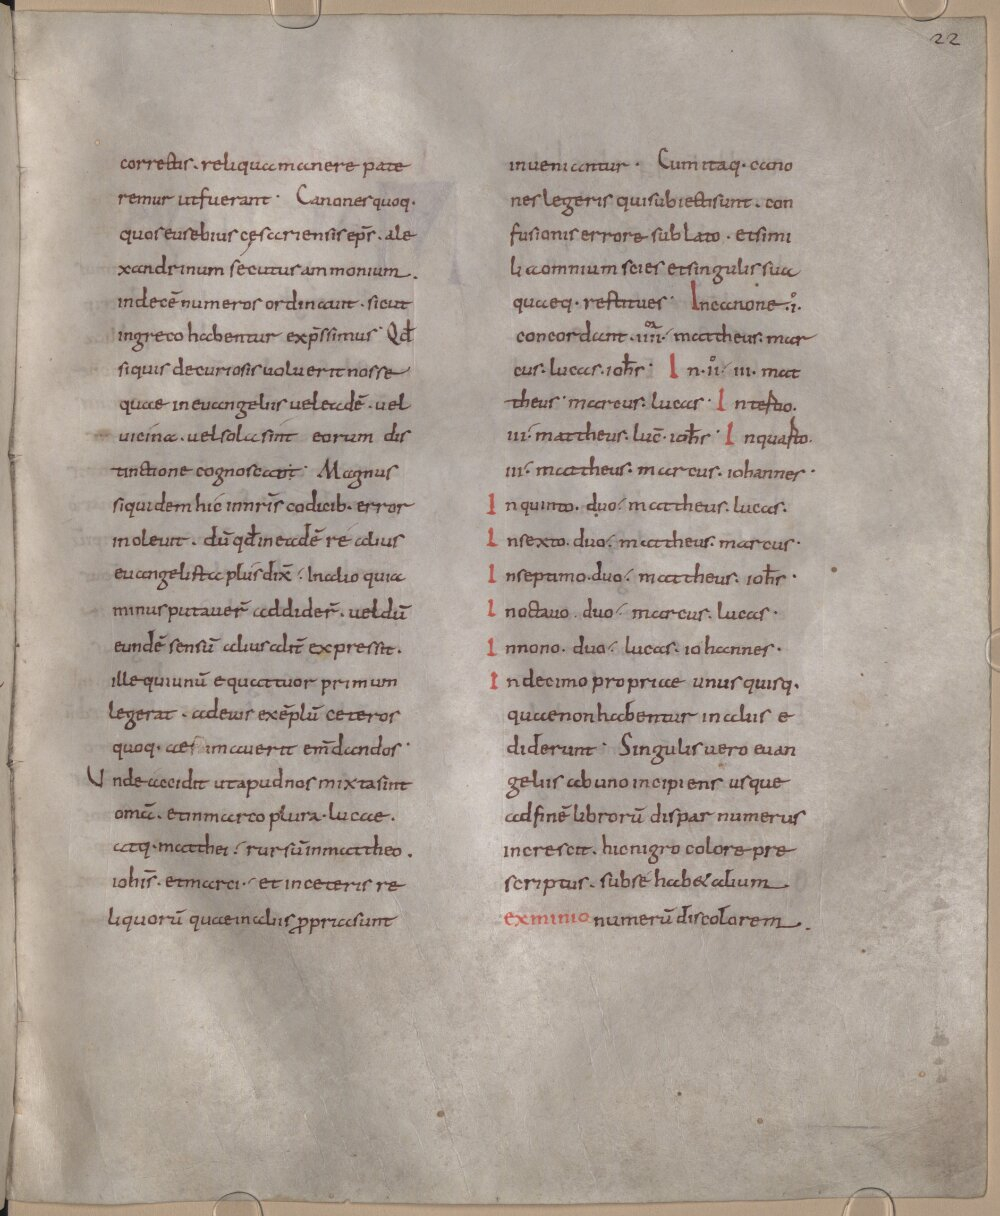 22
correctis. reliqua manere pate
remur ut fuerant· Canones quoq·
quos eusebius cęsariensis ep̄s. ale
xandrinum secutus ammonium.
in decē numeros ordinauit. sicut
in greco habentur exp̄ssimus· Qđ
si quis de curiosis uoluerit nosse
quae in euangeliis uel eadē. uel
uicina. uel sola sint eorum dis
tinctione cognoscat· Magnus
siquidem hic in nr̄is codicib· error
inoleuit. dū qđ in eadē re alius
euangelista plus dix̄· In alio quia
minus putauer̄ addider̄. uel dū
eundē sensū alius alit̄ expressit.
ille qui unū e quattuor primum
legerat. ad eius exēplū ceteros
quoq· aestimauerit em̄dandos·
Unde accidit ut apud nos mixta sint
omā. et in marco plura. lucae.
atq· matthei· rursū in mattheo.
ioh̄is. et marci· et in ceteris re
liquorū quae in aliis ꝓpria sunt
inueniantur· Cum itaq· cano
nes legeris qui subiecti sunt. con
fusionis errore sublato. et simi
lia omnium scies et singulis sua
quaeq. restitues· In canone .i̊.
concordant. iiii· mattheus. mar
cus. lucas. ioh̄s· In .ii̊· iii. mat
theus· marcus. lucas· In tertio.
iii. mattheus. luc̄. ioh̄s· In quarto.
iii. mattheus. marcus. iohannes·
In quinto. duo· mattheus. lucas.
In sexto. duo· mattheus. marcus.
In septimo. duo· mattheus. ioh̄s·
In octauo. duo· marcus. lucas·
In nono. duo· lucas. iohannes·
In decimo propriae unus quisq.
quae non habentur in aliis e
diderunt· Singulis uero euan
geliis ab uno incipiens usque
ad finē librorū dispar numerus
increscit. hic nigro colore pre
scriptus. sub se hab& alium
ex minio numerū discolorem.